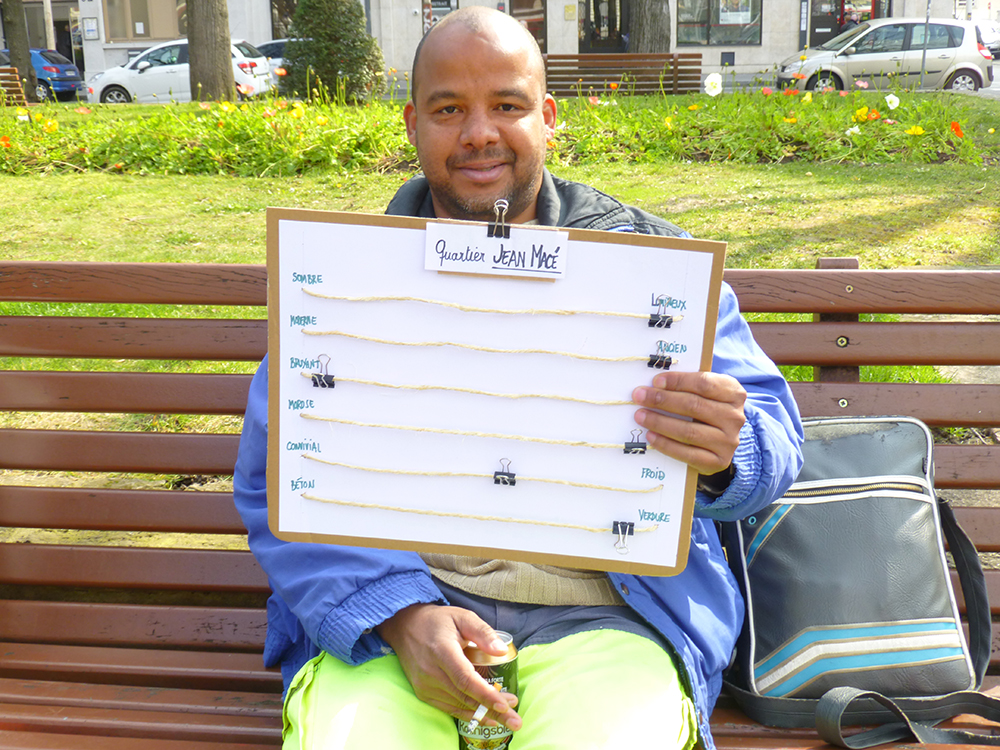 Quartier JEAN MACÉ
SOMBRE
LUMINEUX
MODERNE
ANCIEN
BRUYANT
MOROSE
CONVIVIAL
FROID
BÉTON
VERDURE